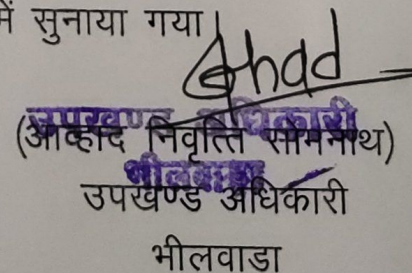 में सुनाया गया
Ahad
उपखण्ड अधिकारी
(आव्हाद निवृत्ति सोमनाथ)
भीलवाडा
उपखण्ड अधिकारी
भीलवाडा